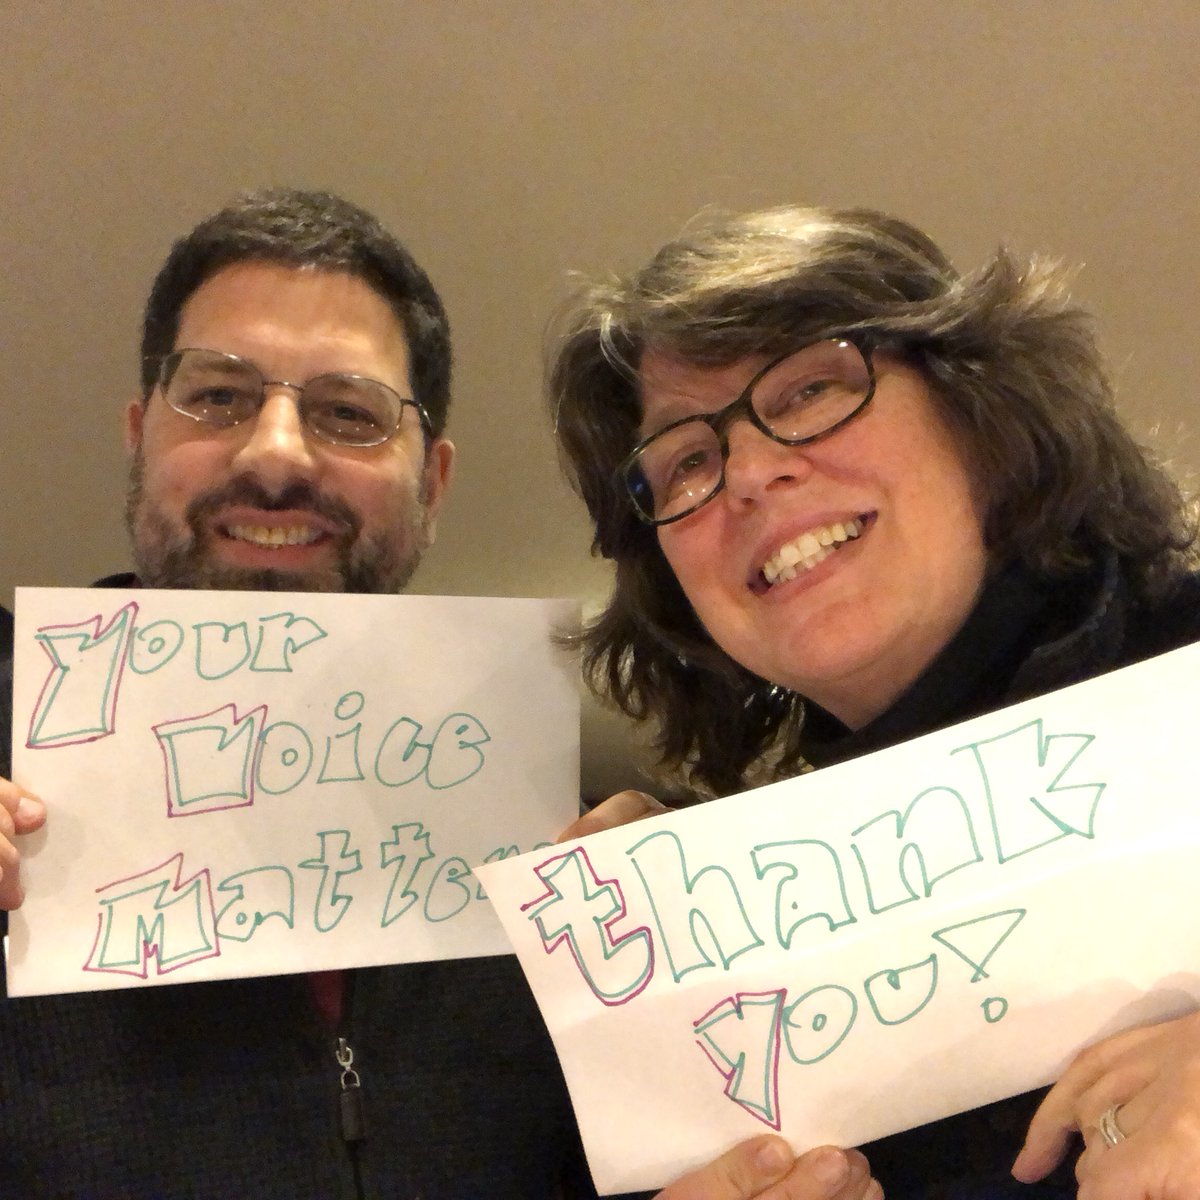 Your
Voice
Matters
thank
you!